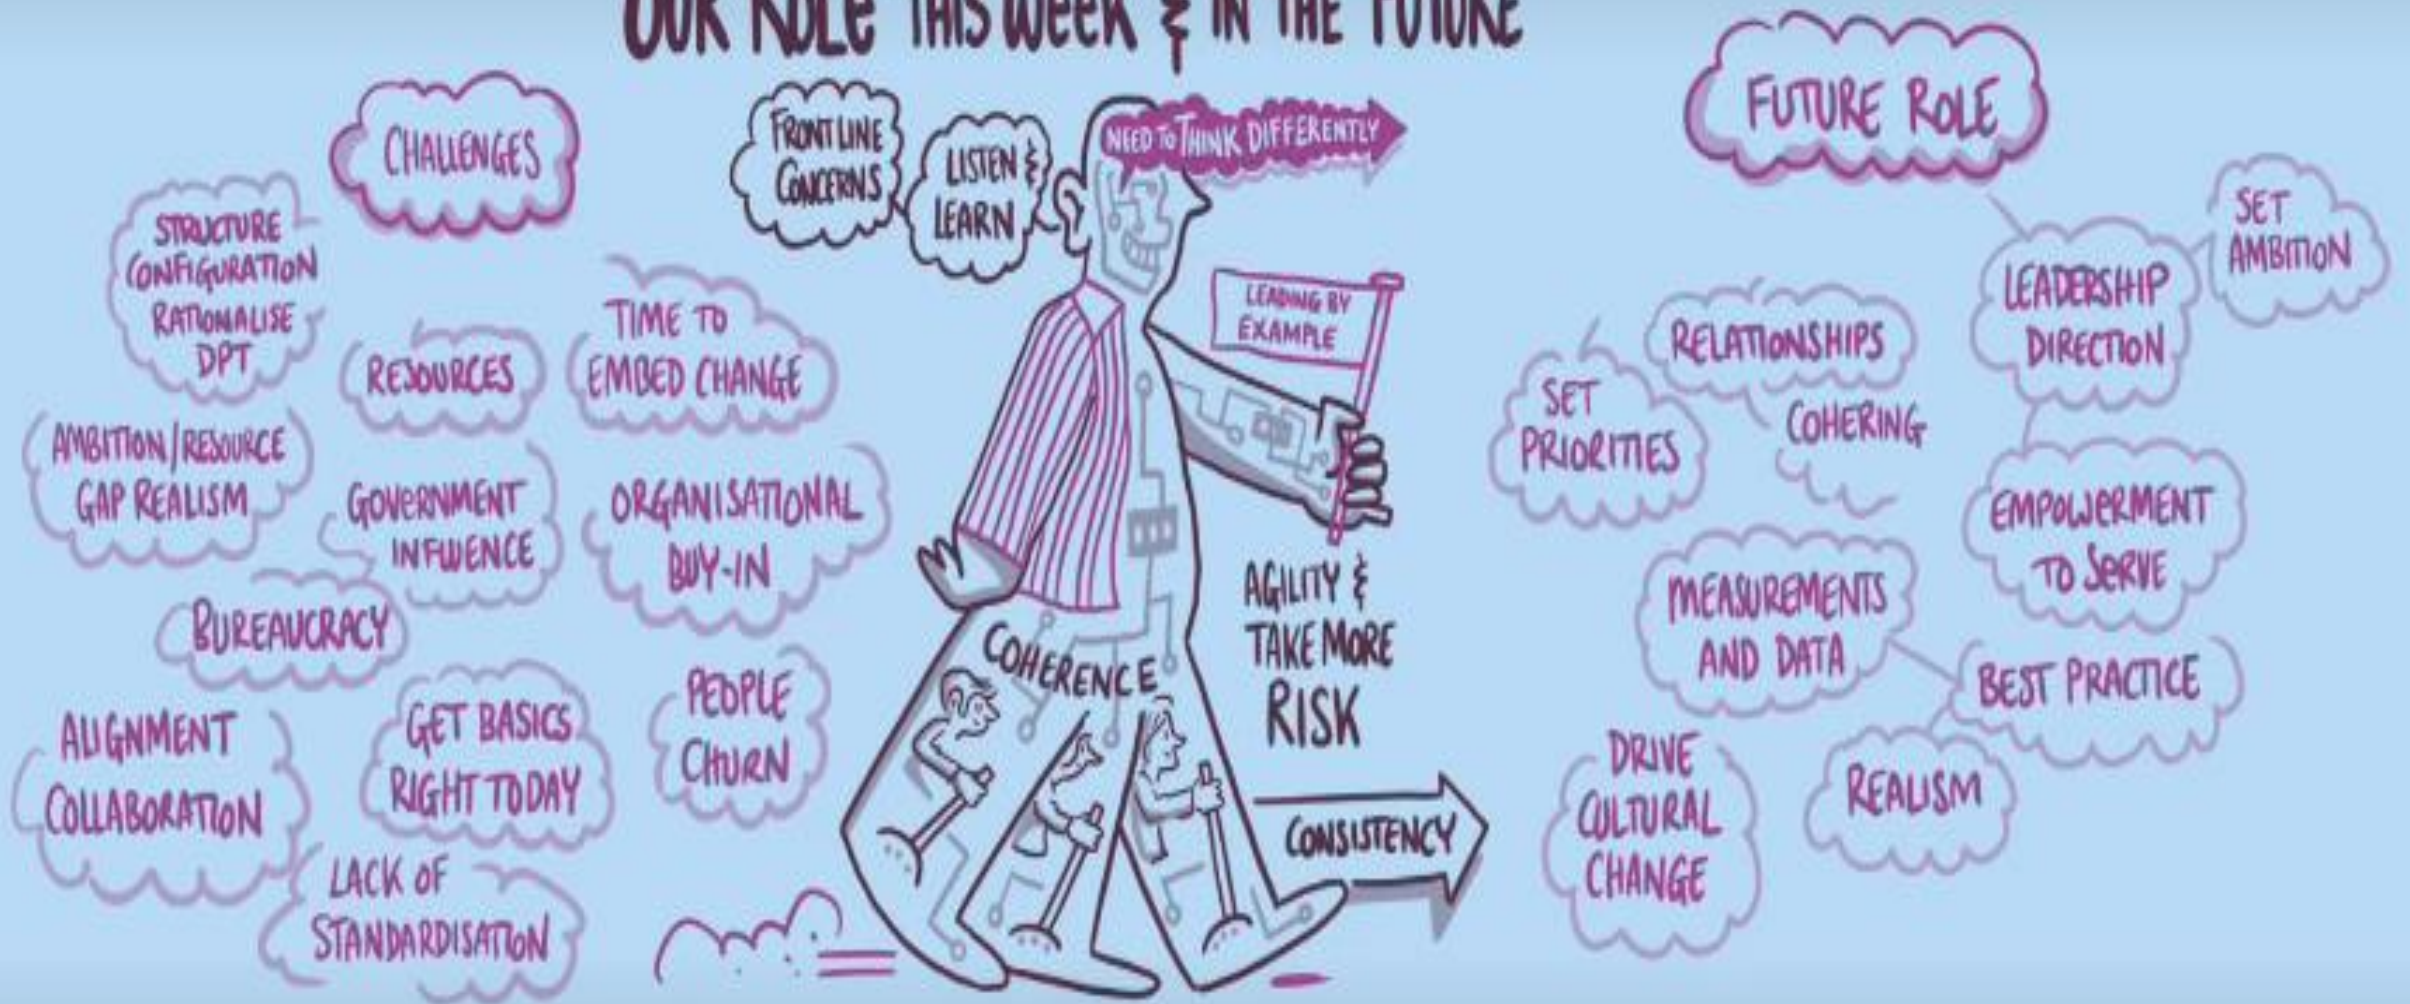 OUR ROLE THIS WEEK & IN THE FUTURE
CHALLENGES
STRUCTURE
CONFIGURATION
RATIONALISE
DPT
RESOURCES
TIME TO
EMBED CHANGE
AMBITION/RESOURCE
GAP REALISM
GOVERNMENT
INFLUENCE
ORGANISATIONAL
BUY-IN
BUREAUCRACY
ALIGNMENT
COLLABORATION
GET BASICS
RIGHT TODAY
PEOPLE
CHURN
LACK OF
STANDARDISATION
FRONT LINE
CONCERNS
LISTEN &
LEARN
NEED TO THINK DIFFERENTLY
LEADING BY
EXAMPLE
COHERENCE
AGILITY &
TAKE MORE
RISK
CONSISTENCY
FUTURE ROLE
SET
AMBITION
LEADERSHIP
DIRECTION
RELATIONSHIPS
COHERING
SET
PRIORITIES
EMPOWERMENT
TO SERVE
MEASUREMENTS
AND DATA
BEST PRACTICE
REALISM
DRIVE
CULTURAL
CHANGE